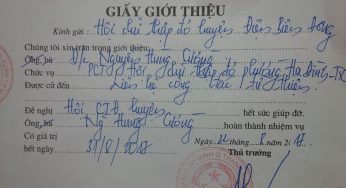 GIẤY GIỚI THIỆU
Kính gửi: Hội chữ thập đỏ huyện Điện Biên Đông
Chúng tôi xin trân trọng giới thiệu:
Ông, bà: Đ/c Nguyễn Hưng Cường
Chức vụ PCT Hội chữ thập đỏ phường Hạ Đình - TX
Được cử đến Liên hệ công tác từ thiện
Đề nghị Hội CTĐ huyện hết sức giúp đỡ.
Ông, bà Ng Hưng Cường hoàn thành nhiệm vụ
Có giá trị Ngày tháng 8 năm 2017
hết ngày 31/8/2017 Thủ trưởng